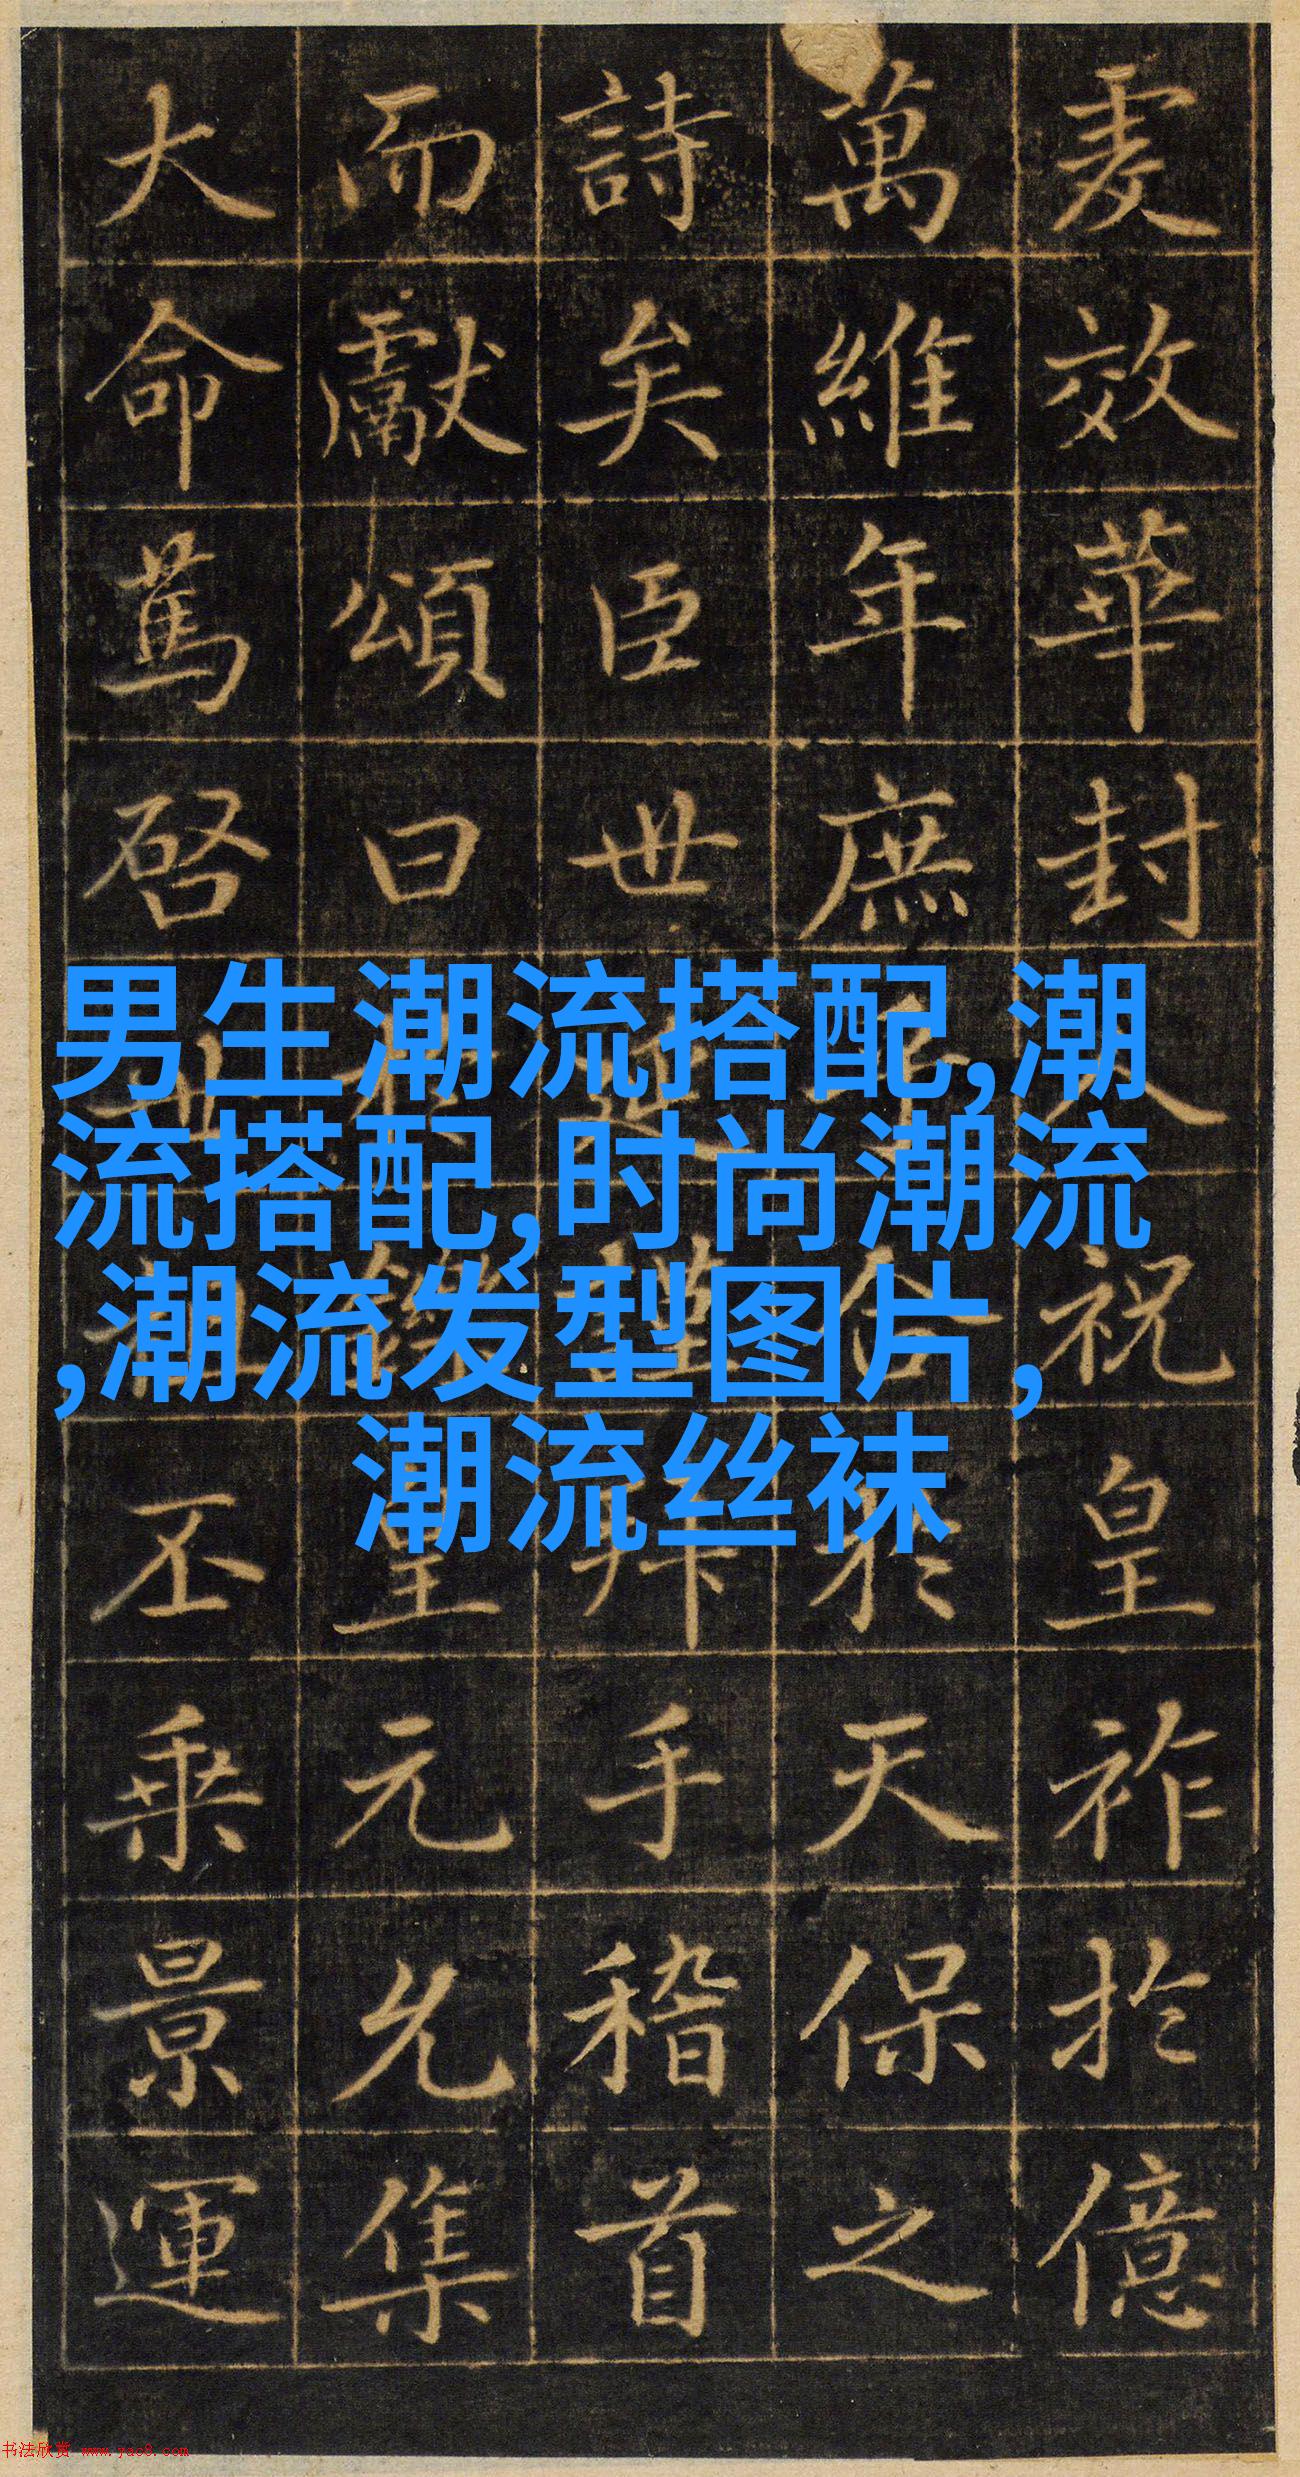 爰效華封人祝皇祚於億
萬維年庶合於天保之
詩矣臣世延謹拜手稽首
而獻頌曰皇元允集
大命篤啓丕乘景運
男生潮流搭配,潮
流搭配,时尚潮流
,潮流发型图片,
潮流丝袜
书法欣赏 www.yac8.com